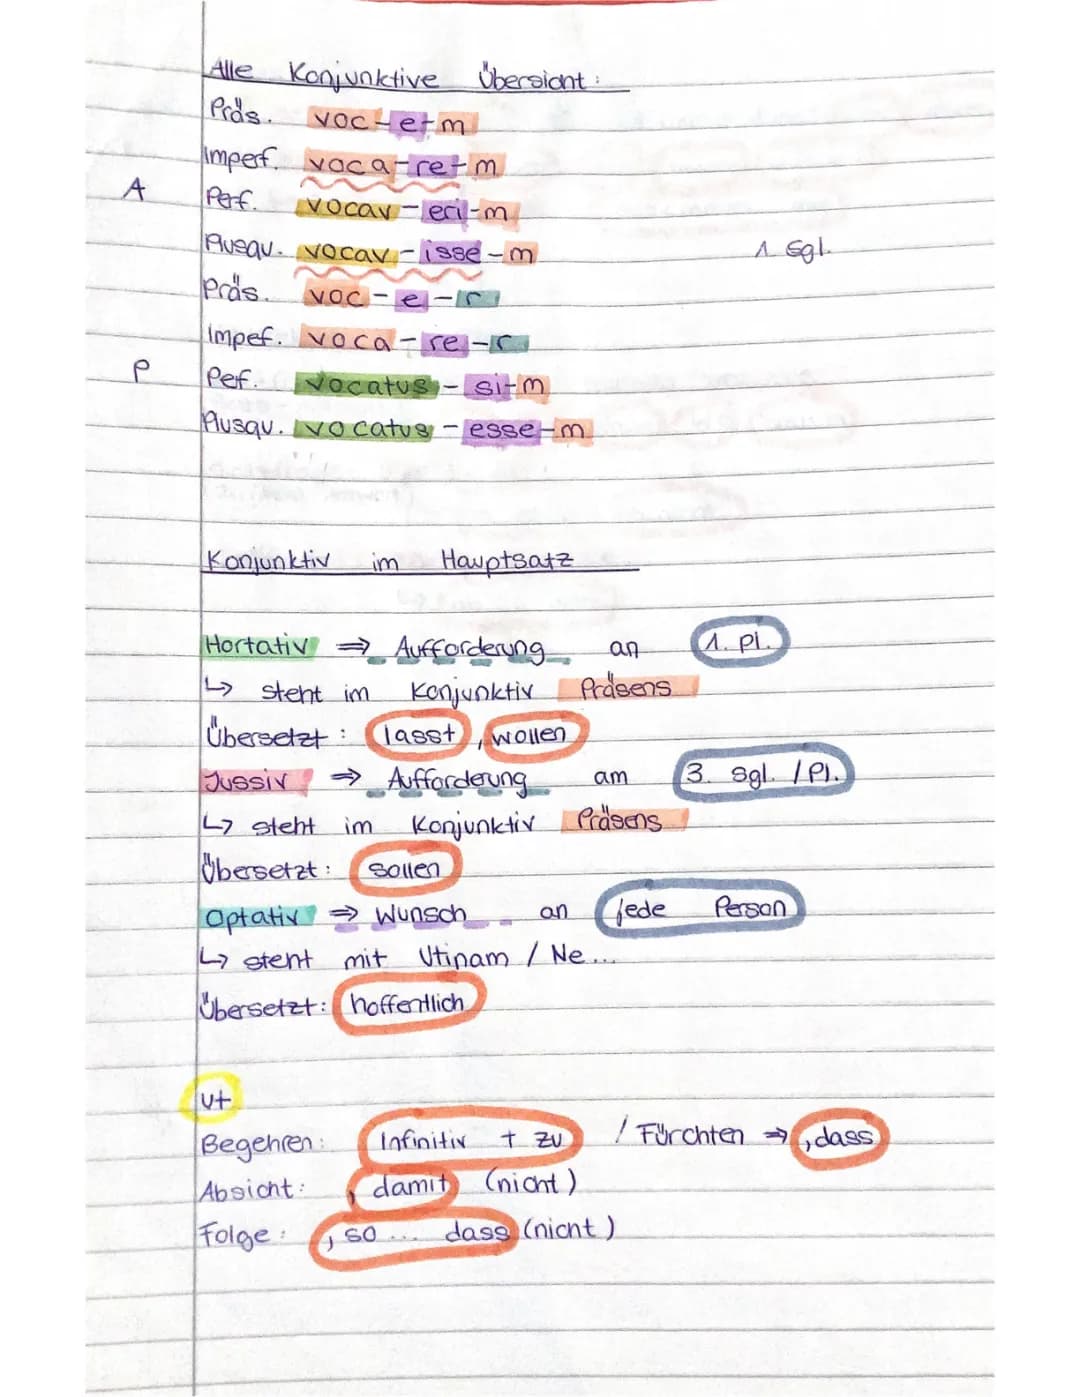 Alle Konjunktive Übersicht:
Präs. voc-e-m
Imperf. voca-re-m
A
Perf. vocav-eri-m
Plusqu. vocav-isse-m
1. Sgl.
Präs. voc-e-r
Impef. voca-re-r
P
Pef. vocatus-si-m
Plusqu. vocatus-esse-m
Konjunktiv im Hauptsatz
Hortativ ⇒ Aufforderung an 1. Pl.
↳ steht im Konjunktiv Präsens
Übersetzt: lasst, wollen
Jussiv ⇒ Aufforderung am 3. Sgl. / Pl.
↳ steht im Konjunktiv Präsens
Übersetzt: sollen
Optativ ⇒ Wunsch an jede Person
↳ steht mit Utinam / Ne...
Übersetzt: hoffentlich
ut
Begehren: Infinitiv + zu / Fürchten ⇒ , dass
Absicht: , damit (nicht)
Folge: , so ... dass (nicht)